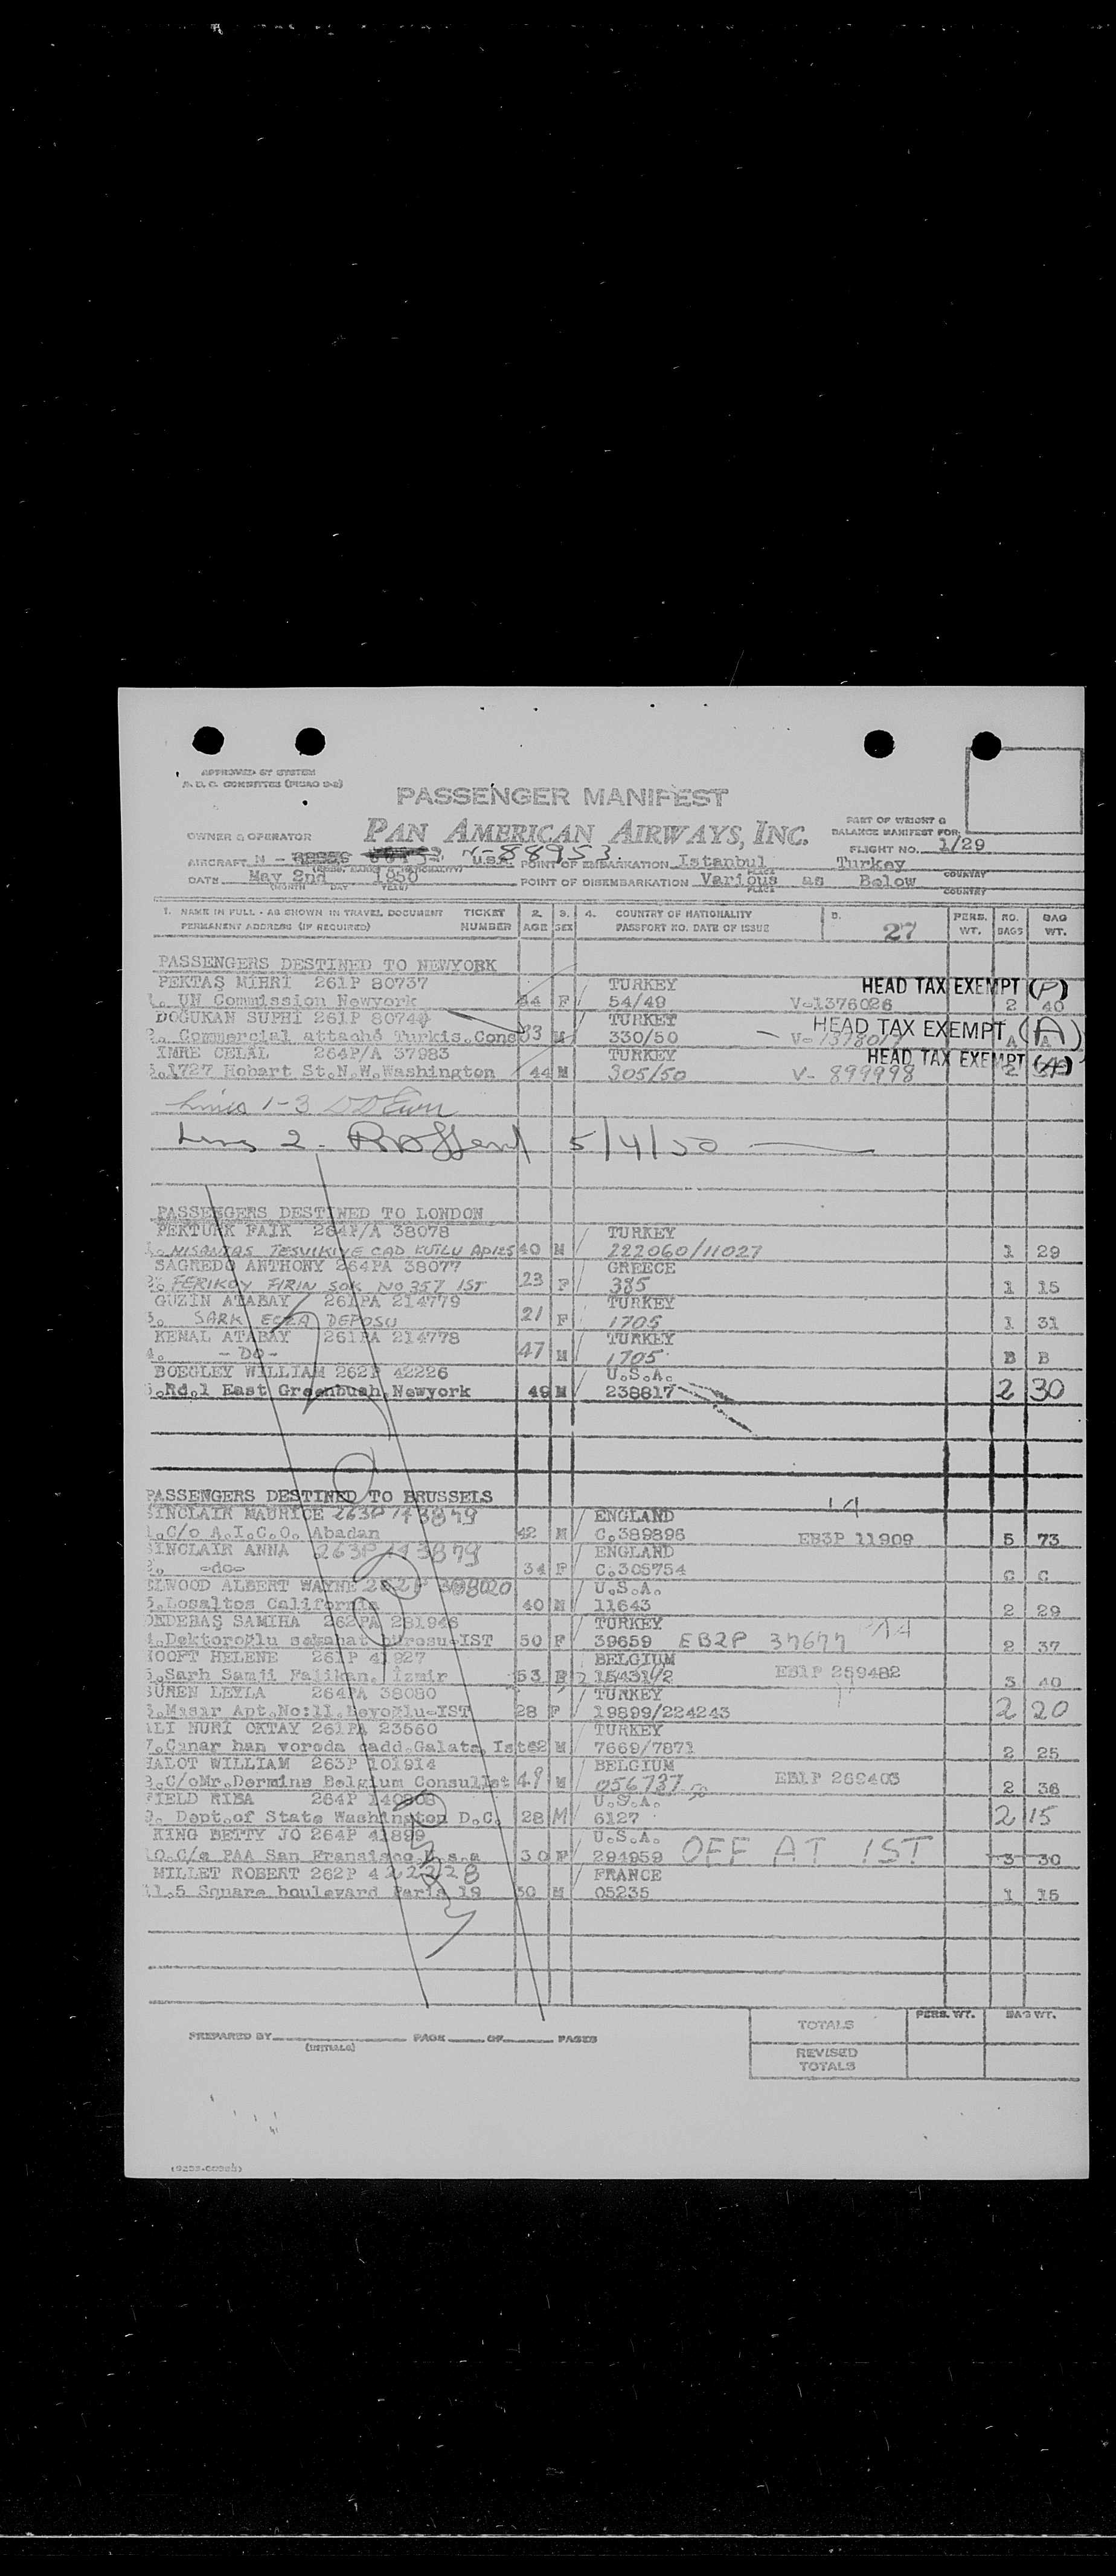 APPROVED BY SYSTEM
PASSENGER MANIFEST
OWNER & OPERATOR PAN AMERICAN AIRWAYS, INC.
PART OF WEIGHT &
BALANCE MANIFEST FOR:
FLIGHT NO. 1/29
AIRCRAFT N - N-88953 U.S.A. POINT OF EMBARKATION Istanbul Turkey
PLACE COUNTRY
DATE May 2nd 1950 POINT OF DISEMBARKATION Various as Below
MONTH DAY YEAR PLACE COUNTRY
1. NAME IN FULL - AS SHOWN IN TRAVEL DOCUMENT TICKET 2. 3. 4. COUNTRY OF NATIONALITY 5. PERS. NO. BAG
PERMANENT ADDRESS (IF REQUIRED) NUMBER AGE SEX PASSPORT NO. DATE OF ISSUE 27 WT. BAGS WT.
PASSENGERS DESTINED TO NEWYORK
PEKTAŞ MIHRI 261P 80737 TURKEY HEAD TAX EXEMPT (P)
1. UN Commission Newyork 44 F 54/49 V-1376026 2 40
DOĞUKAN SUPHI 261P 80744 TURKEY HEAD TAX EXEMPT (A)
2. Commercial attaché Turkis.Cons 33 M 330/50 A A
IMRE CELÂL 264P/A 37983 TURKEY HEAD TAX EXEMPT (A)
3.1727 Hobart St.N.W.Washington 44 M 305/50 V- 899998 2
Lines 1-3
Lines 2. 5/4/50
PASSENGERS DESTINED TO LONDON
PERTURK FAIK 264P/A 38078 TURKEY
NISANTAS TESVIKIYE CAD KUTLU 40 M 222060/11027 1 29
SAGREDO ANTHONY 264PA 38077 GREECE
2. FERIKOY FIRIN SOK NO 357 IST 23 F 385 1 15
GUZIN ATABAY 261PA 214779 TURKEY
3. SARK ECZA DEPOSU 21 F 1705 1 31
KEMAL ATABAY 261PA 214778 TURKEY
4. - DO - 47 M 1705 B B
BOEGLEY WILLIAM 262P 42226 U.S.A.
5.Rd.1 East Greenbush Newyork 49 M 238817 2 30
PASSENGERS DESTINED TO BRUSSELS
SINCLAIR MAURICE 263P 143879 ENGLAND
1.C/o A.I.C.O. Abadan 42 M C.389896 EB3P 11909 5 73
SINCLAIR ANNA 263P 143879 ENGLAND
2. -do- 34 F C.305754 C C
ELWOOD ALBERT WAYNE U.S.A.
3.Losaltos California 40 M 11643 2 29
DEDEBAŞ SAMIHA 262PA 281946 TURKEY
4.Doktoroğlu 50 F 39659 EB2P 37677 2 37
HOOFT HELENE 261P 41927 BELGIUM
5.Sarh Samli Falikan. Izmir 53 F EB1P 259482 3 40
SUREN LEYLA 264PA 38080 TURKEY
6.Misir Apt.No:11.Beyoğlu-IST 28 F 19899/224243 2 20
ALI NURI OKTAY 261PA 23560 TURKEY
7.Cinar han voroda cadd.Galata, Ist 42 M 7669/7871 2 25
HALOT WILLIAM 263P 101914 BELGIUM
8.C/oMr.Dermine Belgium Consul Ist 49 M 056737 EB1P 2 36
FIELD RIBA 264P U.S.A.
9. Dept.of State Washington D.C. 28 M 6127 2 15
KING BETTY JO 264P 41899 U.S.A.
10.C/o PAA San Fransisco U.s.a 30 F 294959 OFF AT IST 3 30
MILLET ROBERT 262P FRANCE
11.5 Square boulevard Paris 19 50 M 05235 1 15
PREPARED BY PAGE OF PAGES
(INITIALS)
PERS. WT. BAG WT.
TOTALS
REVISED
TOTALS